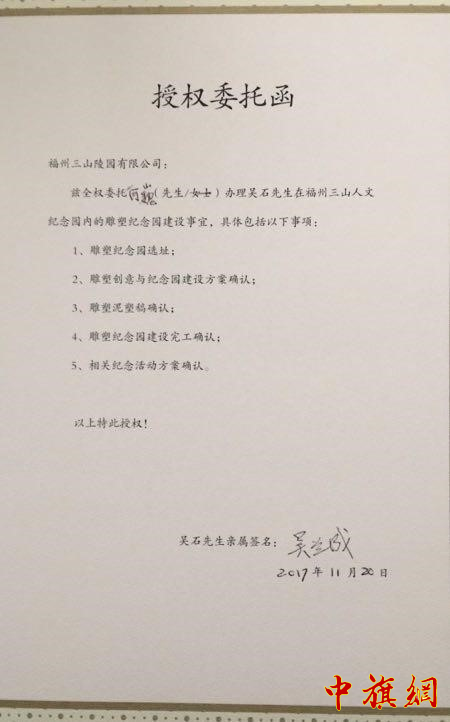 授权委托函
福州三山陵园有限公司：
兹全权委托何巍(先生/女士)办理吴石先生在福州三山人文
纪念园内的雕塑纪念园建设事宜，具体包括以下事项：
1、雕塑纪念园选址；
2、雕塑创意与纪念园建设方案确认；
3、雕塑泥塑稿确认；
4、雕塑纪念园建设完工确认；
5、相关纪念活动方案确认。
以上特此授权！
吴石先生亲属签名：吴兰成
2017年11月20日
中旗網